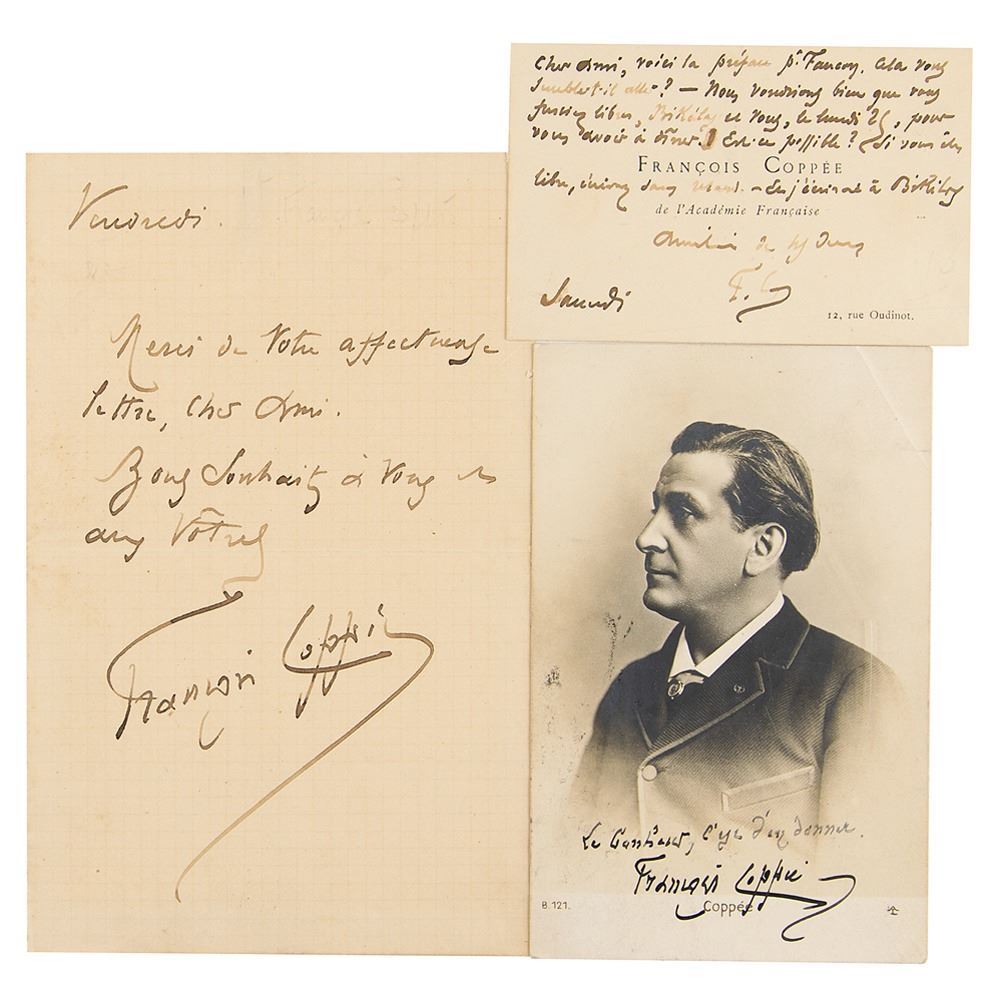 Vendredi.
Merci de Votre affectueuse
lettre, cher Ami.
Bons Souhaits à Vous et
aux Vôtres
François Coppée
Cher Ami, voici la préface pr Faucon. Cela vous
semble-t-il aller ? — Nous voudrions bien que vous
fussiez libres, Bikélas et Vous, le lundi 25, pour
vous avoir à dîner. Est-ce possible ? Si vous êtes
FRANÇOIS COPPÉE
libre, écrivez sans retard. — J'écrirai à Bikélas
de l'Académie Française
Amitiés de
F. C.
Samedi
12, rue Oudinot.
Le bonheur, c'est d'en donner.
François Coppée
B. 121.
Coppée